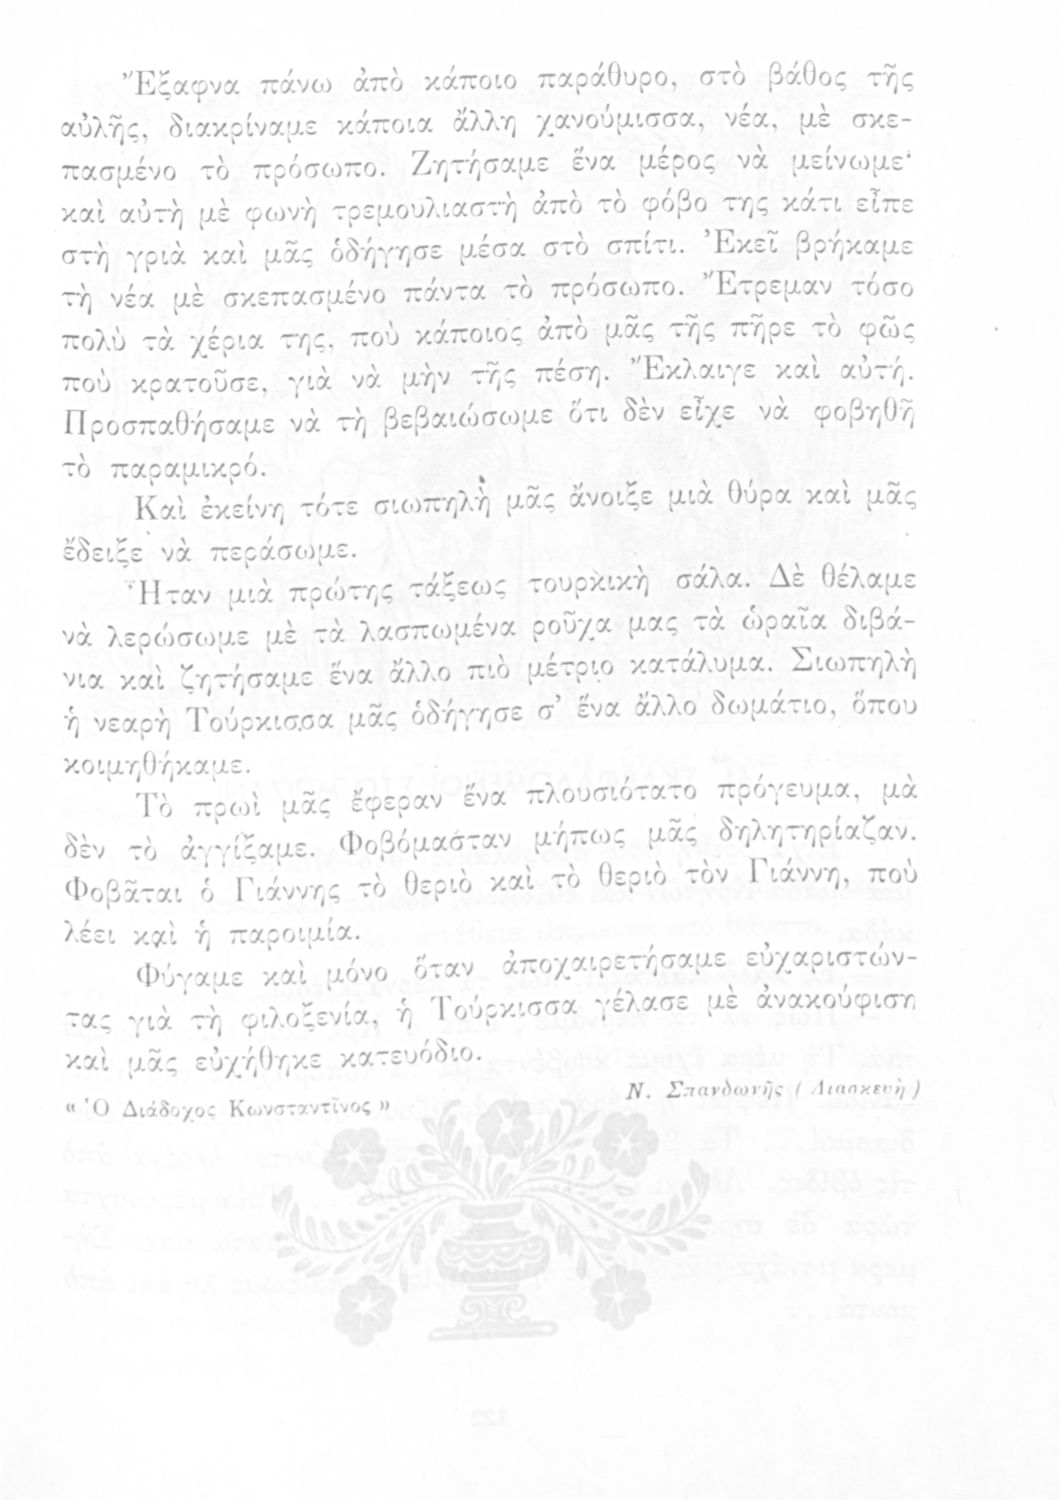 Ἔξαφνα πάνω ἀπὸ κάποιο παράθυρο, στὸ βάθος τῆς
αὐλῆς, διακρίναμε κάποια ἄλλη χανούμισσα, νέα, μὲ σκε-
πασμένο τὸ πρόσωπο. Ζητήσαμε ἕνα μέρος νὰ μείνωμε·
καὶ αὐτὴ μὲ φωνὴ τρεμουλιαστὴ ἀπὸ τὸ φόβο της κάτι εἶπε
στὴ γριὰ καὶ μᾶς ὁδήγησε μέσα στὸ σπίτι. Ἐκεῖ βρήκαμε
τὴ νέα μὲ σκεπασμένο πάντα τὸ πρόσωπο. Ἔτρεμαν τόσο
πολὺ τὰ χέρια της, ποὺ κάποιος ἀπὸ μᾶς τῆς πῆρε τὸ φῶς
ποὺ κρατοῦσε, γιὰ νὰ μὴν τῆς πέση. Ἔκλαιγε καὶ αὐτή.
Προσπαθήσαμε νὰ τὴ βεβαιώσωμε ὅτι δὲν εἶχε νὰ φοβηθῆ
τὸ παραμικρό.
Καὶ ἐκείνη τότε σιωπηλὴ μᾶς ἄνοιξε μιὰ θύρα καὶ μᾶς
ἔδειξε νὰ περάσωμε.
Ἦταν μιὰ πρώτης τάξεως τουρκικὴ σάλα. Δὲ θέλαμε
νὰ λερώσωμε μὲ τὰ λασπωμένα ροῦχα μας τὰ ὡραῖα διβά-
νια καὶ ζητήσαμε ἕνα ἄλλο πιὸ μέτριο κατάλυμα. Σιωπηλὴ
ἡ νεαρὴ Τούρκισσα μᾶς ὁδήγησε σ' ἕνα ἄλλο δωμάτιο, ὅπου
κοιμηθήκαμε.
Τὸ πρωὶ μᾶς ἔφεραν ἕνα πλουσιότατο πρόγευμα, μὰ
δὲν τὸ ἀγγίξαμε. Φοβόμασταν μήπως μᾶς δηλητηρίαζαν.
Φοβᾶται ὁ Γιάννης τὸ θεριὸ καὶ τὸ θεριὸ τὸν Γιάννη, ποὺ
λέει καὶ ἡ παροιμία.
Φύγαμε καὶ μόνο ὅταν ἀποχαιρετήσαμε εὐχαριστών-
τας γιὰ τὴ φιλοξενία, ἡ Τούρκισσα γέλασε μὲ ἀνακούφιση
καὶ μᾶς εὐχήθηκε κατευόδιο.
Ν. Σπανδωνῆς ( Διασκευὴ )
« Ὁ Διάδοχος Κωνσταντῖνος »